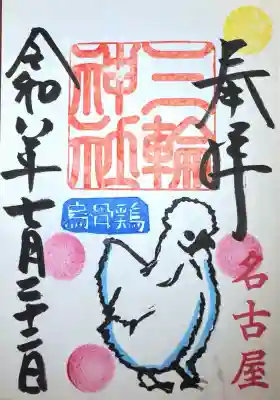 奉拝
名古屋
三輪
神社
烏骨鶏
令和八年七月二十二日